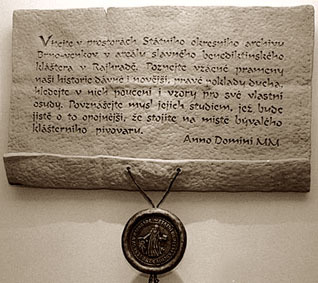 Vítejte v prostorách Státního okresního archivu
Brno-venkov v areálu slavného benediktinského
kláštera v Rajhradě. Poznejte vzácné prameny
naší historie dávné i novější, pravé poklady ducha,
hledejte v nich poučení i vzory pro své vlastní
osudy. Povznášejte mysl jejich studiem, jež bude
jistě o to opojnější, že stojíte na místě bývalého
klášterního pivovaru.
Anno Domini MM